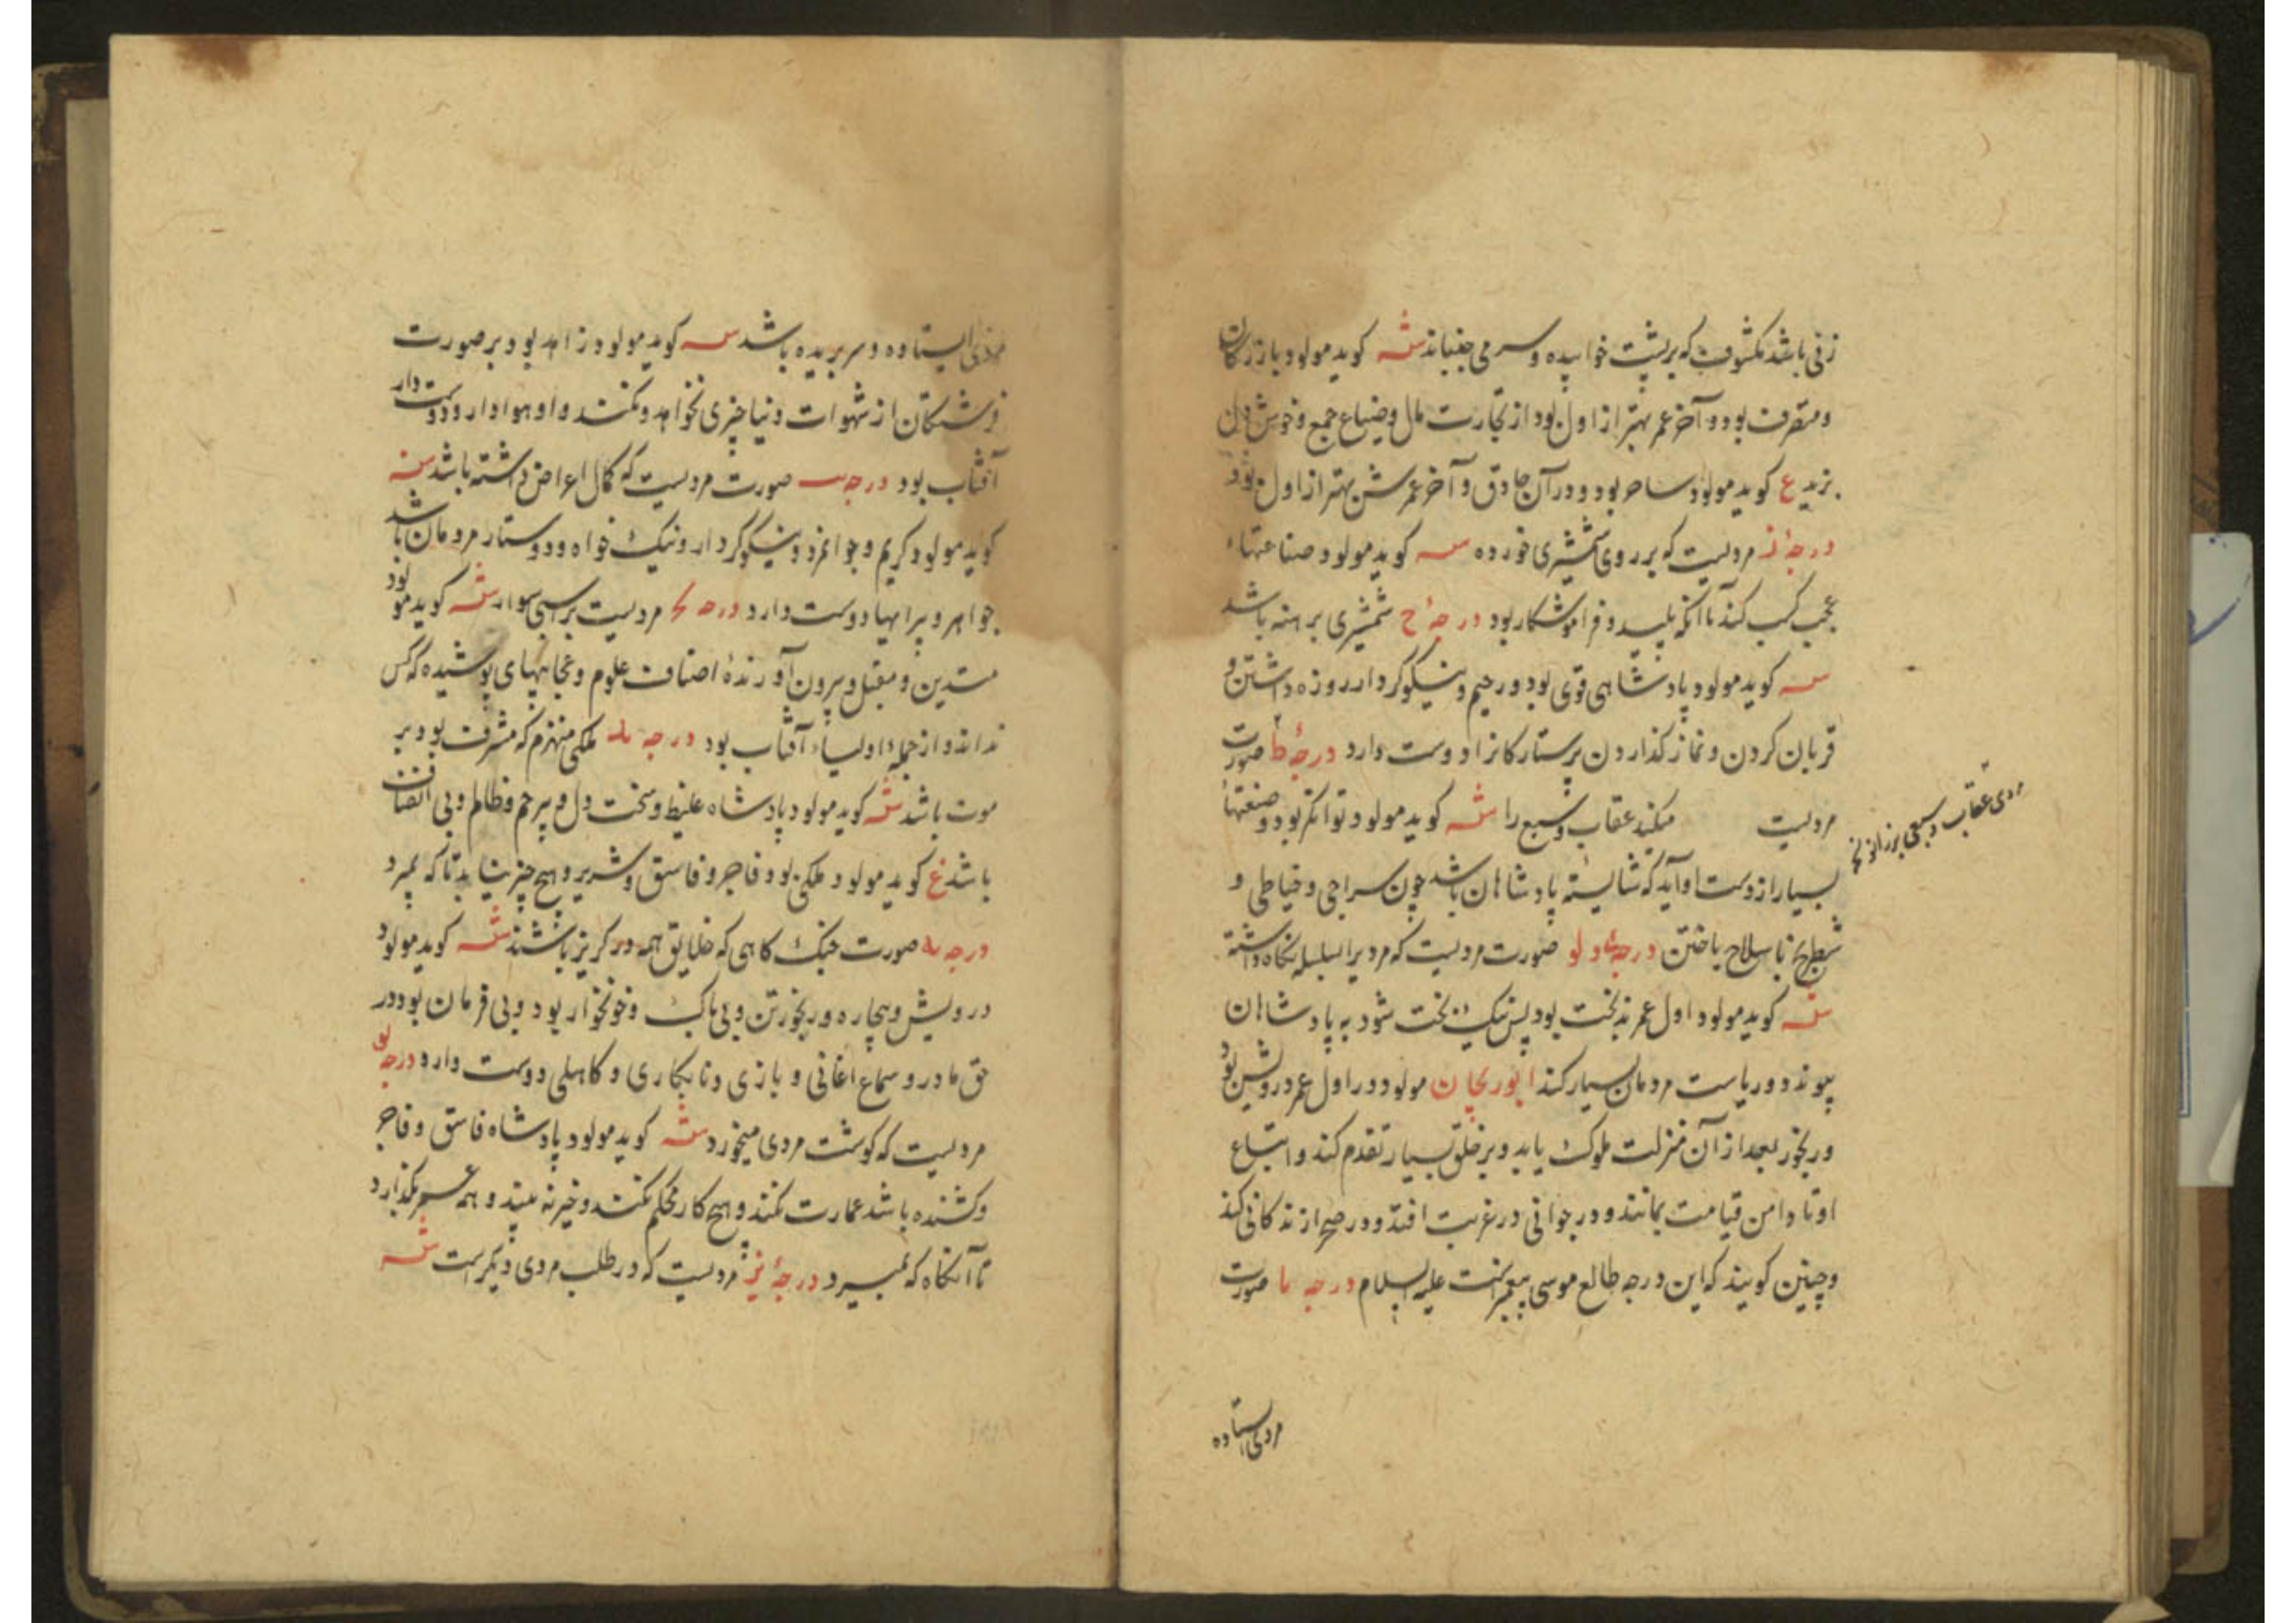 زنی باشد مکشوف که بر پشت خوابیده و سر می جنباند شه کوید مولود بازرکان
و متصرف بود و آخر عمر بهتر از اول بود از تجارت مال و ضیاع جمع و خوش دل
زید ع کوید مولود ساحر بود و در آن حاذق و آخر عمرش بهتر از اول بود
درجۀ ز مردیست که بر روی شمشیری خورده سه کوید مولود صناعتهاء
عجب کسب کند با آنکه پلید و فراموشکار بود درجۀ ح شمشیری برهنه باشد
سه کوید مولود پادشاهی قوی بود و رحیم و نیکوکردار و روزه داشتن و
قربان کردن و نماز گذاردن پرستارکانرا دوست دارد درجۀ ط صورت
مردیست میکند عقاب و سبع را شه کوید مولود توانکر بود و صنعتها
مردی عقاب و سبعی بر زانو
بسیار از دست او آید که شایسته پادشاهان باشد چون سراجی و خیاطی و
شطرنج با سلاح باختن درجۀ دلو صورت مردیست که مردیرا بسلسله نکاه داشته
شه کوید مولود اول عمر بدبخت بود پس نیک بخت شود به پادشاهان
پیوندد و ریاست مردمان بسیار کند ابوریحان مولود در اول عمر درویش بود
و رنجور بعد از آن منزلت ملوک یابد و بر خلق بسیار تقدم کند و اتباع
او تا دامن قیامت بمانند و در جوانی در غربت افتد و در صحرا زندکانی کند
و چنین کویند که این درجه طالع موسی پیغمبر است علیه السلام درجه یا صورت
مردی ایستاده
مردی ایستاده و سر بریده باشد سه کوید مولود زاهد بود و بر صورت
فرشتکان از شهوات دنیا چیزی نخواهد و نکند و او هوادار و دوست دار
آفتاب بود درجه یب صورت مردیست که کمال اعراض داشته باشد سه
کوید مولود کریم و جوانمرد و نیکوکردار و نیک خواه و دوستار مردمان باشد
جواهر و پیرایها دوست دارد درجه یج مردیست بر اسبی سوار شه کوید مولود
متدین و مقبل و بیرون آورندۀ اصناف علوم و عجایبهای پوشیده که کس
نداند و از جمله اولیاء آفتاب بود درجه ید ملکی منهزم که مشرف بود بر
موت باشد شه کوید مولود پادشاه غلیظ و سخت دل و بیرحم و ظالم و بی انصاف
باشد ع کوید مولود ملکی بود فاجر و فاسق و شریر و هیچ چیز نیابد تا که بمیرد
درجه یه صورت جنک کاهی که خلایق همه در کریز باشند شه کوید مولود
درویش و بیچاره و رنجورتن و بی باک و خونخوار بود و بی فرمان بود در
حق مادر و سماع اغانی و بازی و نابکاری و کاهلی دوست دارد درجه یو
مردیست که کوشت مردی میخورد شه کوید مولود پادشاه فاسق و فاجر
و کشنده باشد عمارت نکند و هیچ کار محکم نکند و خیر نه بیند و همه عمر بگذارد
تا آنکاه که بمیرد درجۀ یز مردیست که در طلب مردی دیکر است شه